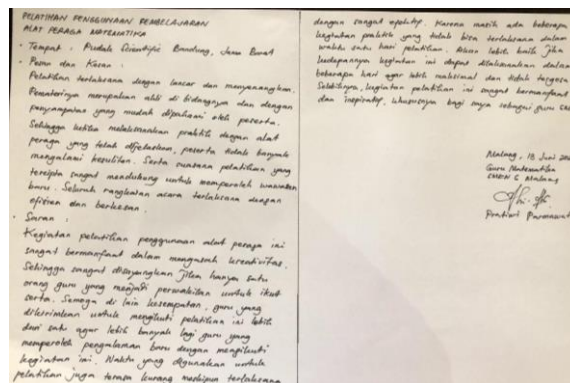 PELATIHAN PENGGUNAAN PEMBELAJARAN
ALAT PERAGA MATEMATIKA
• Tempat : Pudak Scientific Bandung, Jawa Barat
• Pesan dan Kesan :
Pelatihan terlaksana dengan lancar dan menyenangkan.
Pematerinya merupakan ahli di bidangnya dan dengan
penyampaian yang mudah dipahami oleh peserta.
Sehingga ketika melaksanakan praktik dengan alat
peraga yang telah dijelaskan, peserta tidak banyak
mengalami kesulitan. Serta suasana pelatihan yang
tercipta sangat mendukung untuk memperoleh wawasan
baru. Seluruh rangkaian acara terlaksana dengan
efisien dan berkesan.
• Saran :
Kegiatan pelatihan penggunaan alat peraga ini
sangat bermanfaat dalam mengasah kreativitas.
Sehingga sangat disayangkan jika hanya satu
orang guru yang menjadi perwakilan untuk ikut
serta. Semoga di lain kesempatan, guru yang
dikirimkan untuk mengikuti pelatihan ini lebih
dari satu agar lebih banyak lagi guru yang
memperoleh pengalaman baru dengan mengikuti
kegiatan ini. Waktu yang digunakan untuk
pelatihan juga terasa kurang meskipun terlaksana
dengan sangat efektif. Karena masih ada beberapa
kegiatan praktik yang tidak bisa terlaksana dalam
waktu satu hari pelatihan. Akan lebih baik jika
kedepannya kegiatan ini dapat dilaksanakan dalam
beberapa hari agar lebih maksimal dan tidak tergesa
Selebihnya, kegiatan pelatihan ini sangat bermanfaat
dan inspiratif, khususnya bagi saya sebagai guru
Malang, 18 Juni
Guru Matematika
SMKN 6 Malang